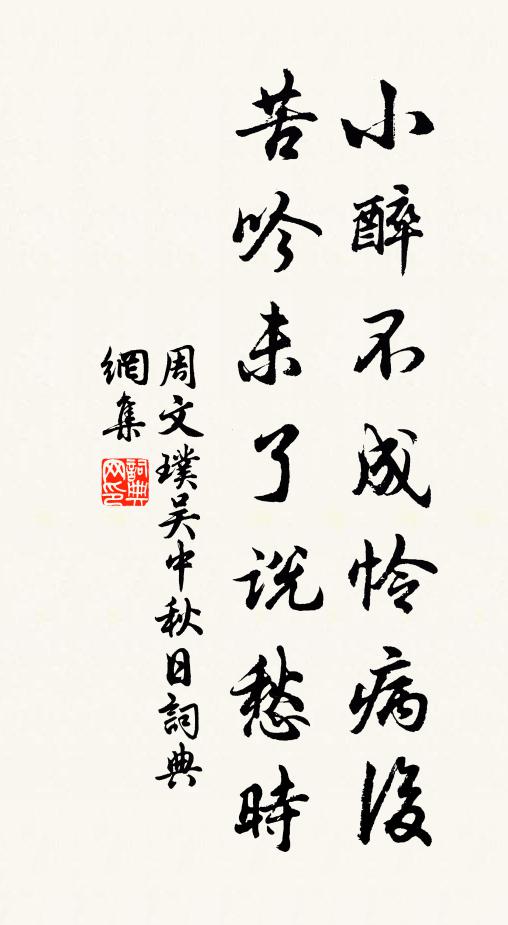 小醉不成怜病後
苦吟未了說愁時
周文璞吴中秋日詞典
網集
詞典網印